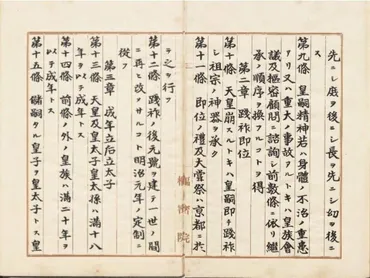 先ニシ庶ヲ後ニシ長ヲ先ニシ幼ヲ後ニ
ス
第九條 皇嗣精神若ハ身體ノ不治ノ重患
アリ又ハ重大ノ事故アルトキハ皇族會
議及樞密顧問ニ諮詢シ前數條ニ依リ繼
承ノ順序ヲ換フルコトヲ得
第二章 踐祚即位
第十條 天皇崩スルトキハ皇嗣即チ踐祚
シ祖宗ノ神器ヲ承ク
第十一條 即位ノ禮及大嘗祭ハ京都ニ於
樞密院
テ之ヲ行フ
第十二條 踐祚ノ後元號ヲ建テ一世ノ間
ニ再ヒ改メサルコト明治元年ノ定制ニ
從フ
第三章 成年立后立太子
第十三條 天皇及皇太子皇太孫ハ滿十八
年ヲ以テ成年トス
第十四條 前條ノ外ノ皇族ハ滿二十年ヲ
以テ成年トス
第十五條 儲嗣タル皇子ヲ皇太子トス皇